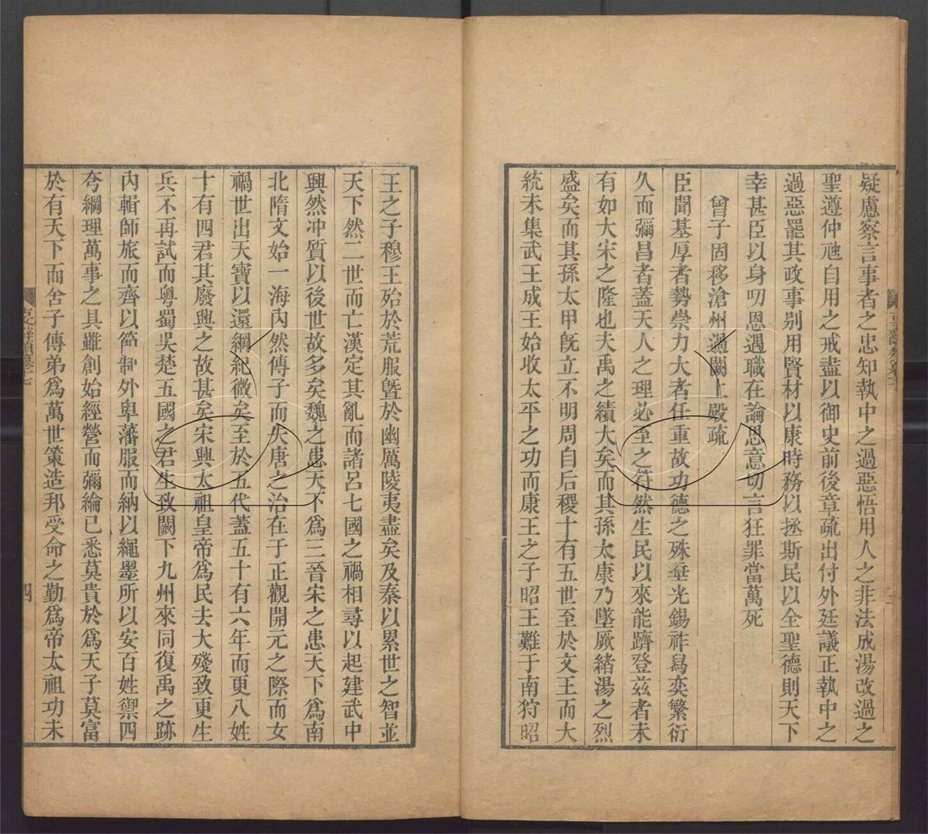 疑慮察言事者之忠知執中之過惡悟用人之非法成湯改過之
聖遵仲虺自用之戒盡以御史前後章疏出付外廷議正執中之
過惡罷其政事别用賢材以康時務以拯斯民以全聖德則天下
幸甚臣以身叨恩遇職在論思意切言狂罪當萬死
曾子固移滄州過闕上殿疏
臣聞基厚者勢崇力大者任重故功德之殊垂光錫祚舄奕繁衍
久而彌昌者蓋天人之理必至之符然生民以來能躋登兹者未
有如大宋之隆也夫禹之績大矣而其孫太康乃墜厥緒湯之烈
盛矣而其孫太甲旣立不明周自后稷十有五世至於文王而大
統未集武王成王始收太平之功而康王之子昭王難于南狩昭
王之子穆王殆於荒服曁於幽厲陵夷盡矣及秦以累世之智並
天下然二世而亡漢定其亂而諸呂七國之禍相尋以起建武中
興然冲質以後世故多矣魏之患天下爲三晉宋之患天下爲南
北隋文始一海内然傳子而失唐之治在于正觀開元之際而女
禍世出天寶以還綱紀微矣至於五代蓋五十有六年而更八姓
十有四君其廢興之故甚矣宋興太祖皇帝爲民去大殘致更生
兵不再試而粤蜀吳楚五國之君生致闕下九州來同復禹之跡
内輯師旅而齊以節制外卑藩服而納以繩墨所以安百姓禦四
夸綱理萬事之具雖創始經營而彌綸已悉莫貴於爲天子莫富
於有天下而舍子傳弟爲萬世策造邦受命之勤爲帝太祖功未
四